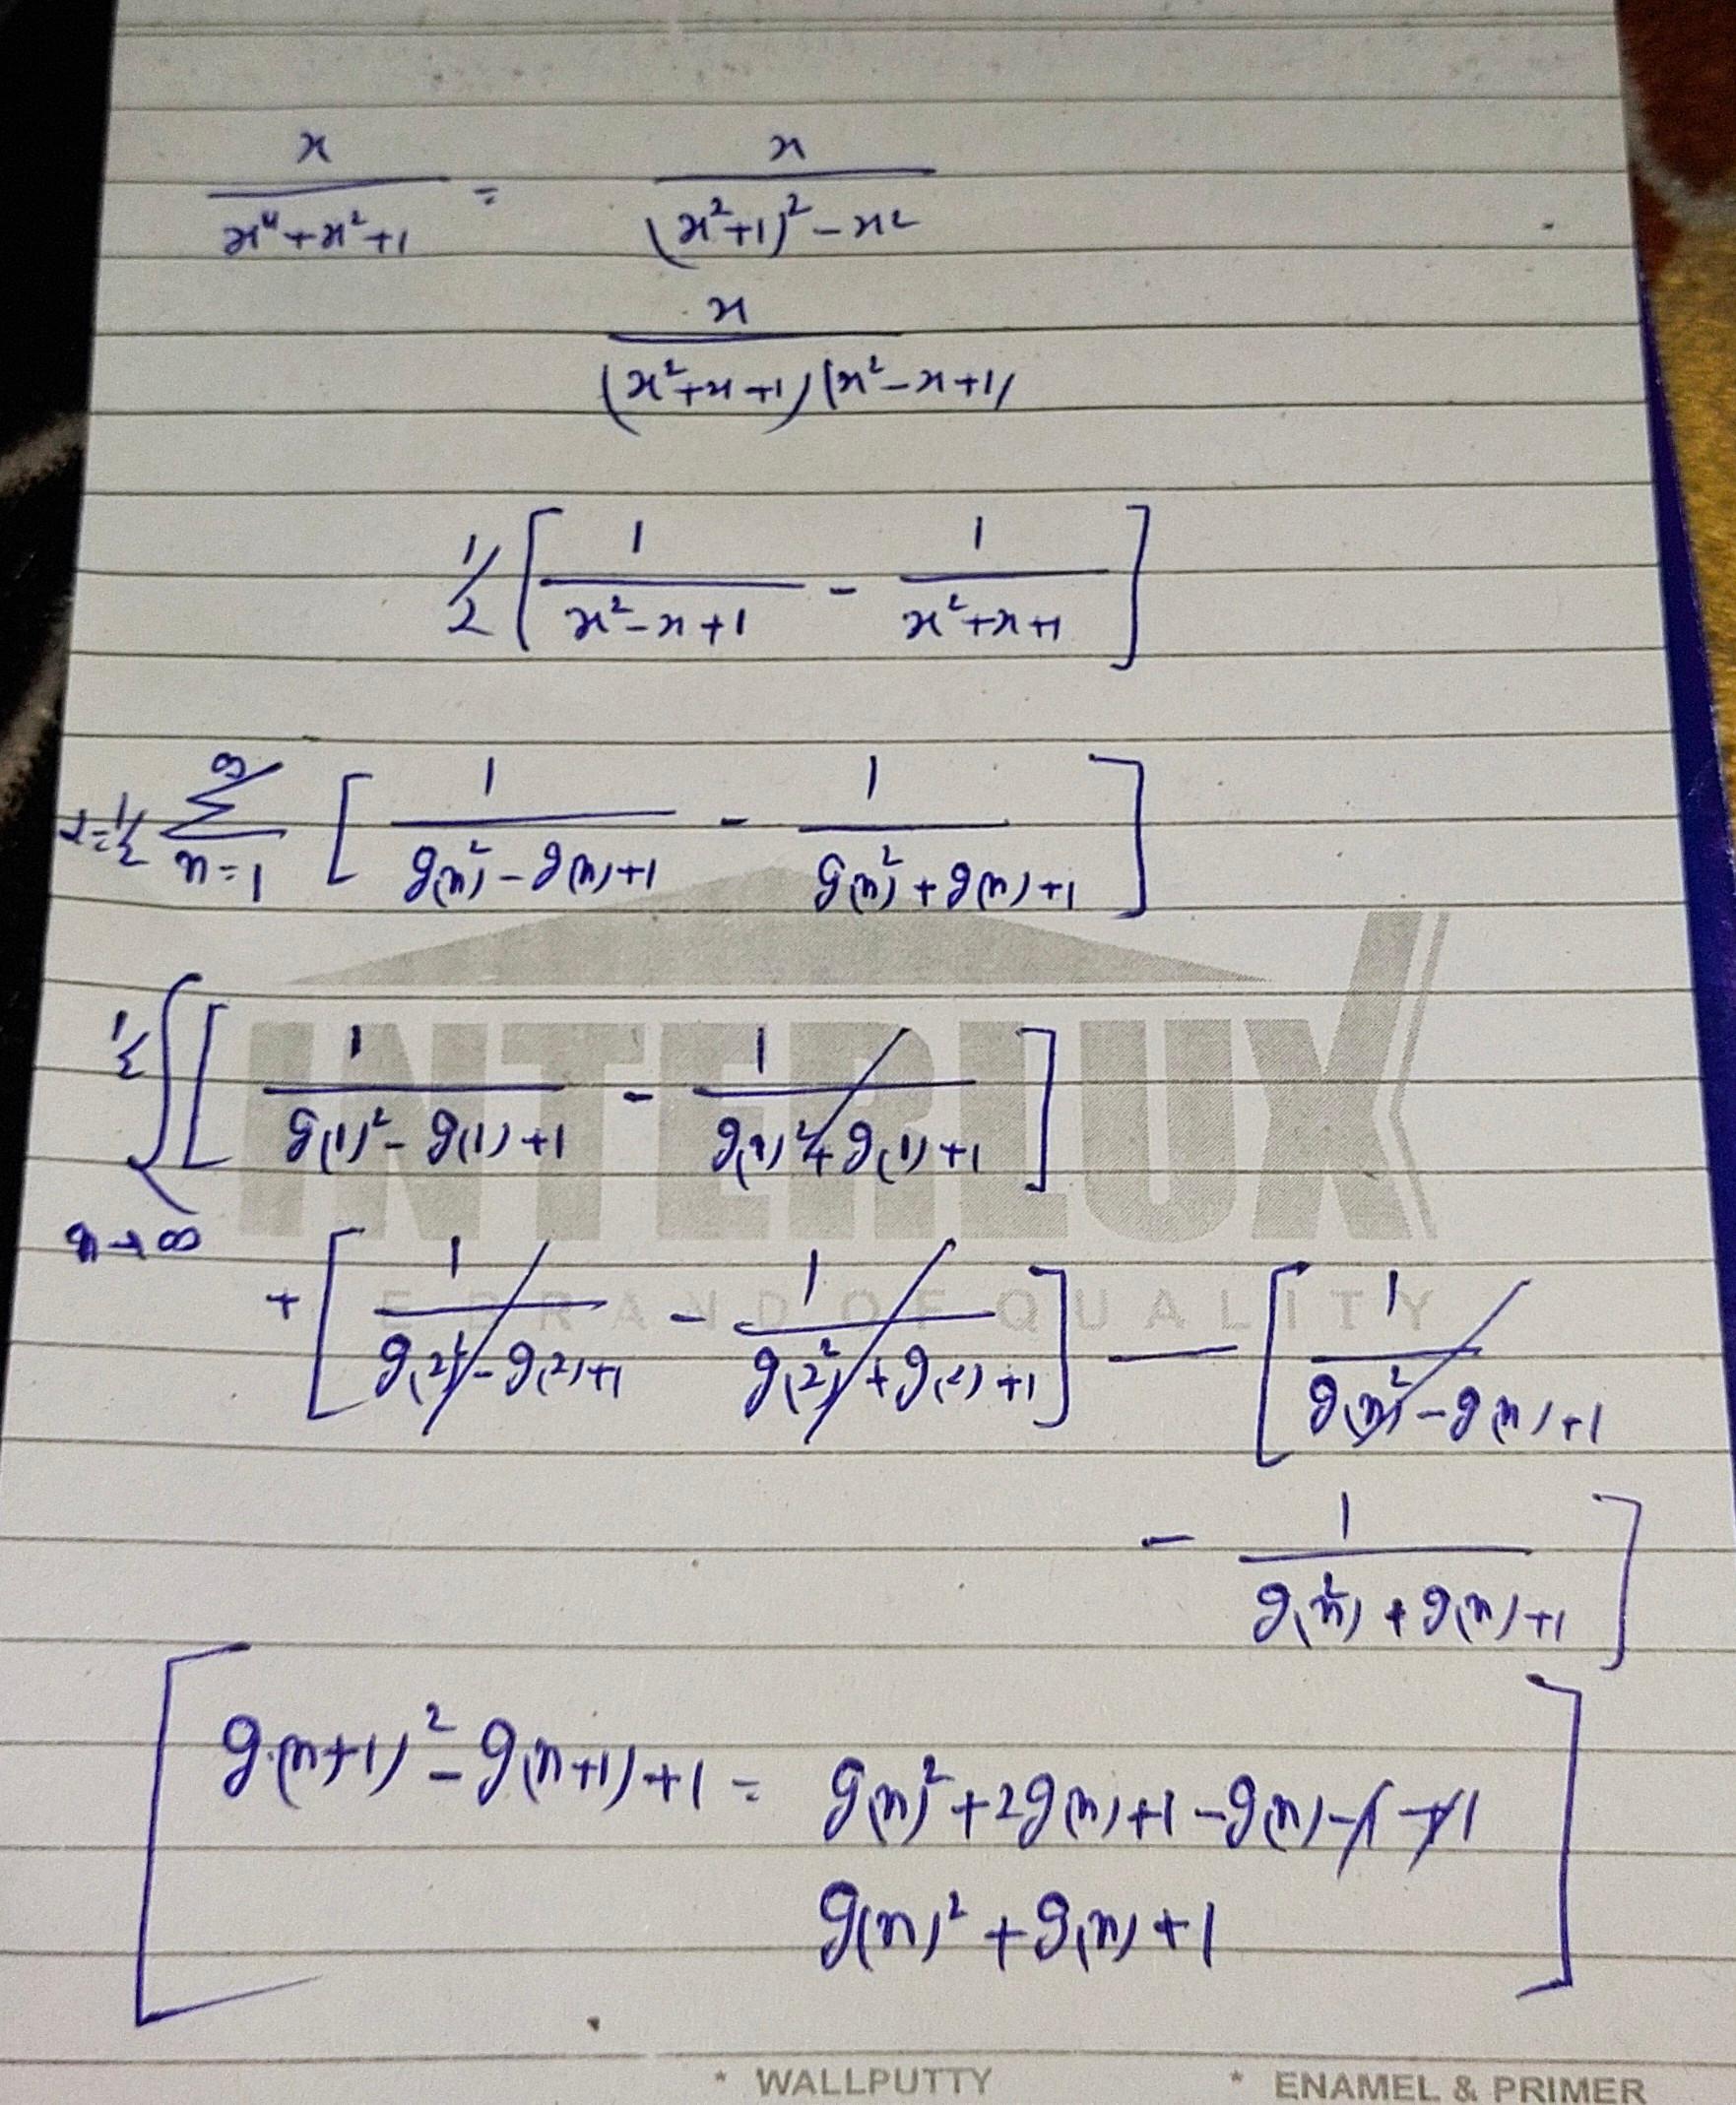 x/(x⁴+x²+1) = x/((x²+1)²-x²)
x/((x²+x+1)(x²-x+1))
1/2 [ 1/(x²-x+1) - 1/(x²+x+1) ]
=1/2 ∑_{n=1}^{∞} [ 1/(g(n)²-g(n)+1) - 1/(g(n)²+g(n)+1) ]
1/2 { [ 1/(g(1)²-g(1)+1) - 1/(g(1)²+g(1)+1) ]
n→∞
+ [ 1/(g(2)²-g(2)+1) - 1/(g(2)²+g(2)+1) ] — [ 1/(g(n)²-g(n)+1)
- 1/(g(n)²+g(n)+1) ]
[ g(n+1)²-g(n+1)+1 = g(n)²+2g(n)+1-g(n)-1+1
g(n)²+g(n)+1 ]
INTERLUX
E BRAND OF QUALITY
* WALLPUTTY * ENAMEL & PRIMER